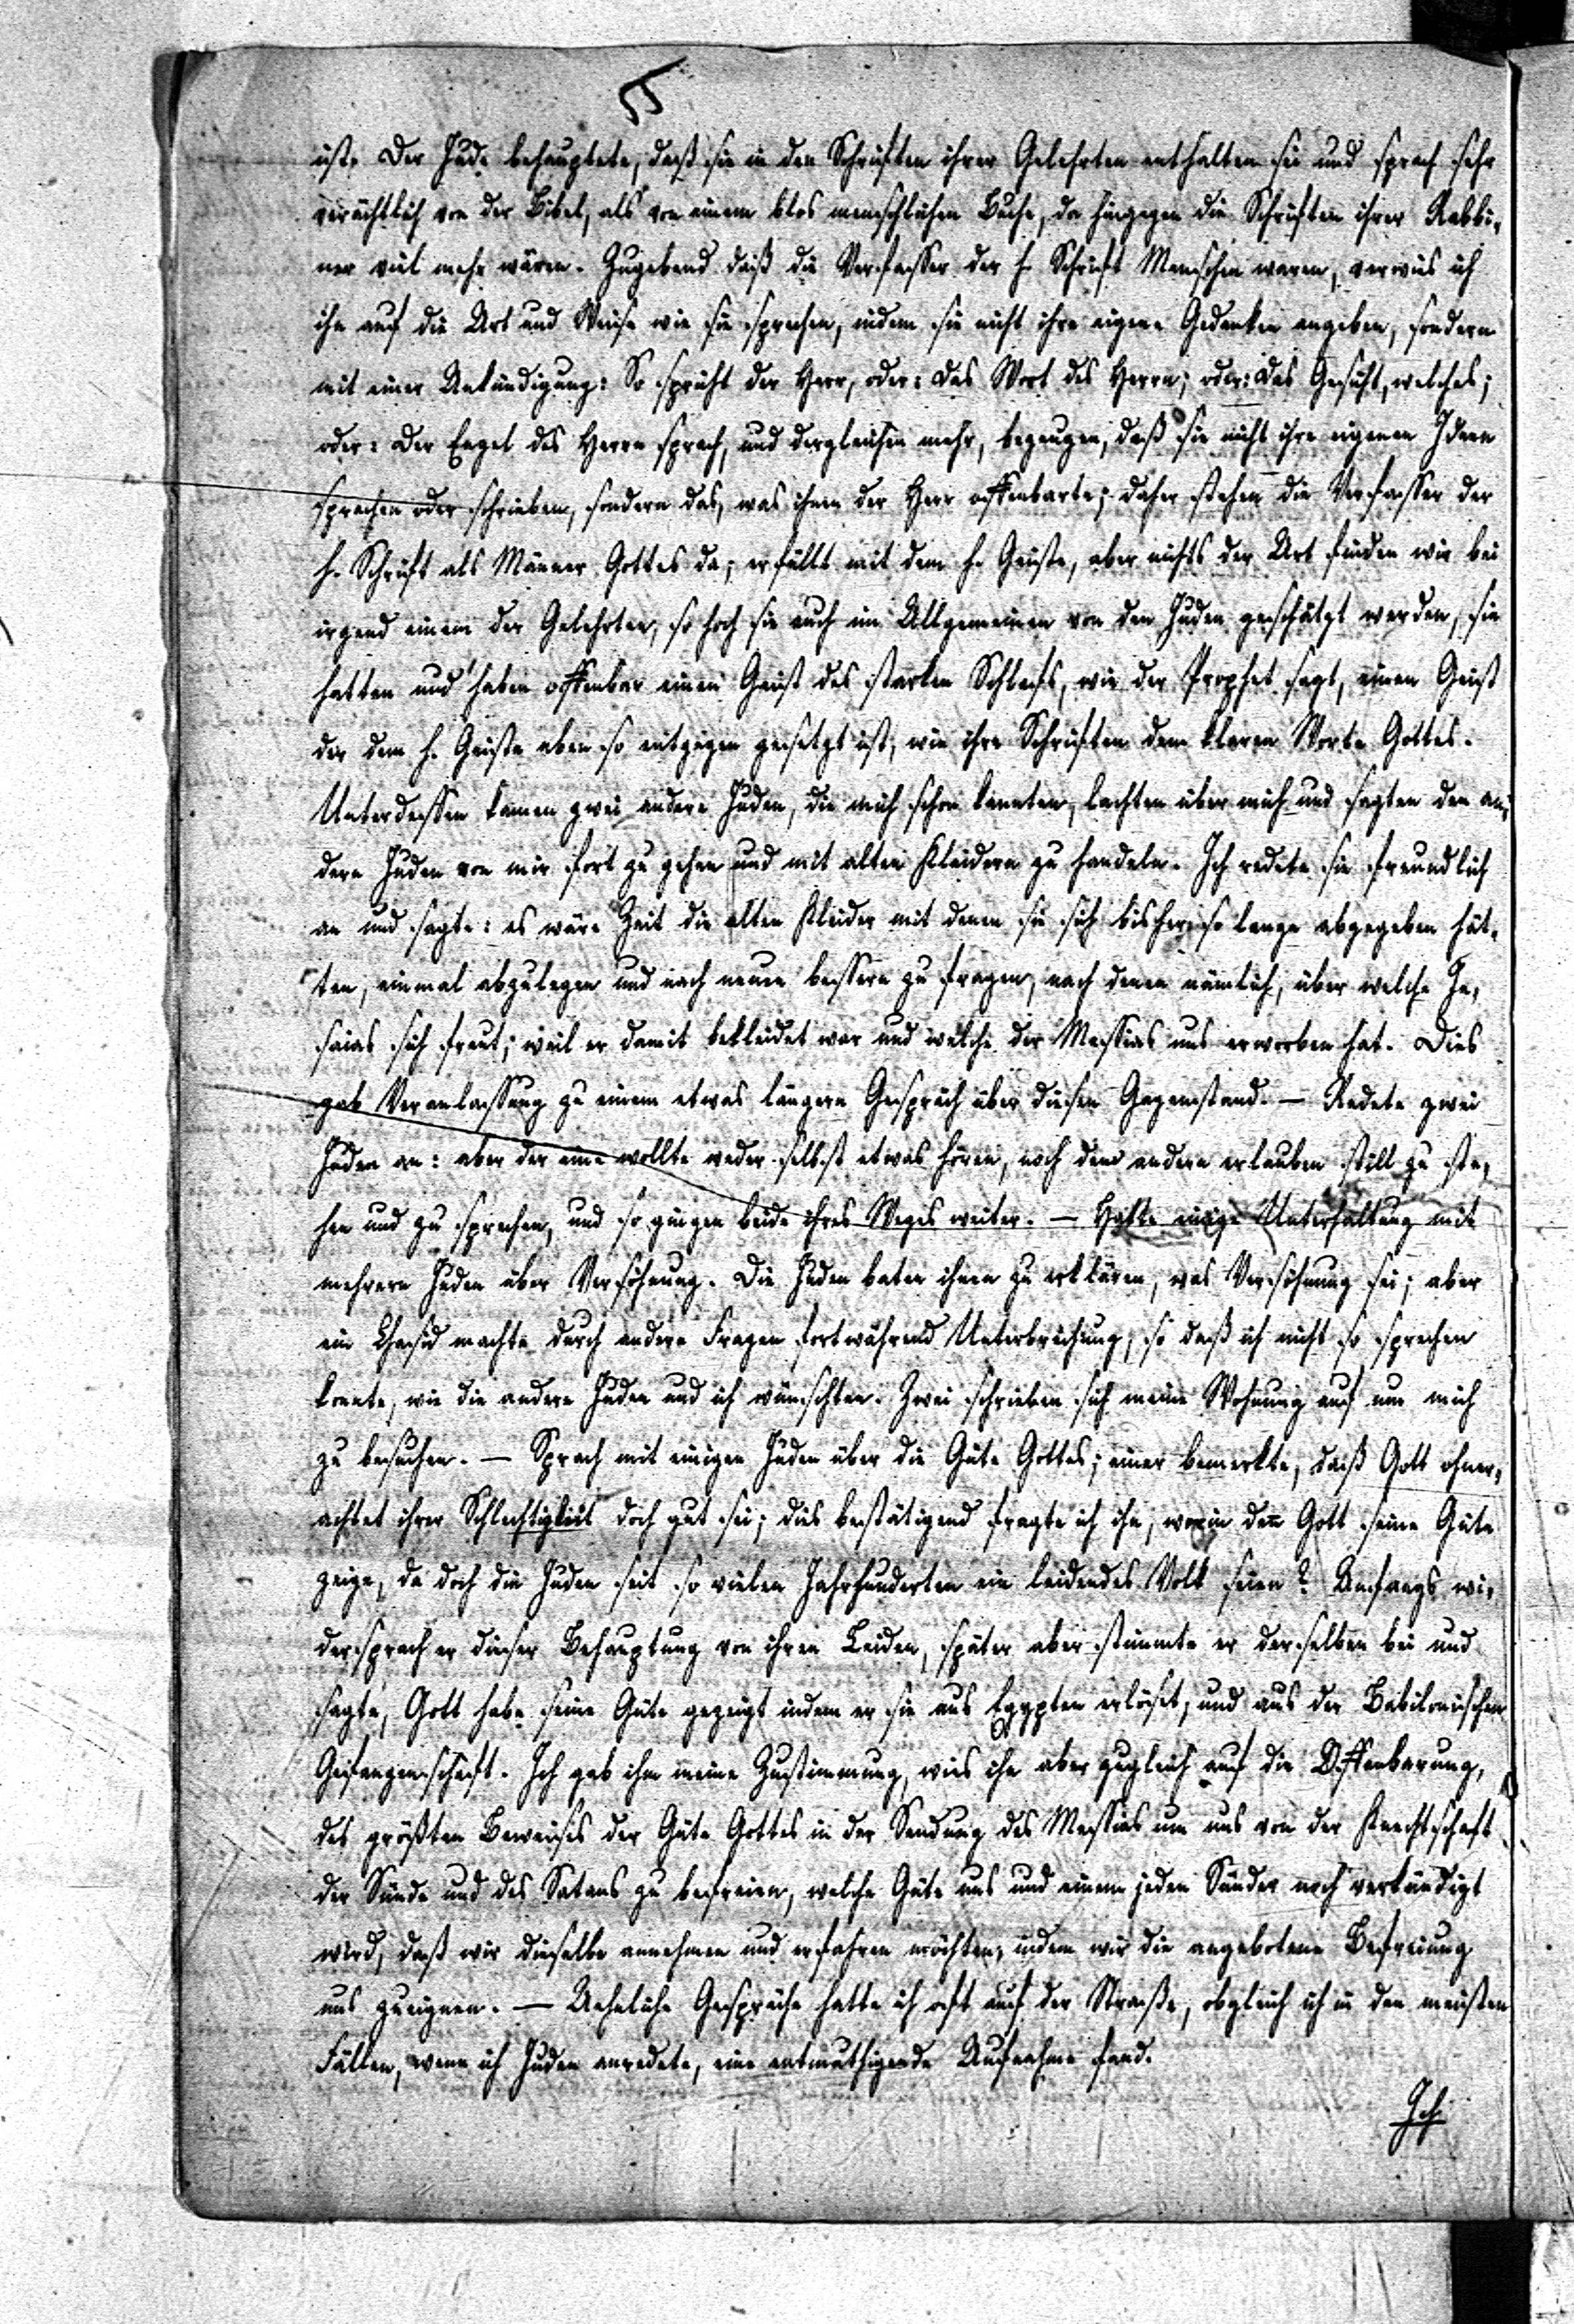 55
ist. Der Jude behauptete, daß sie in den Schriften ihrer Gelehrten enthalten sei und sprach sehr
verächtlich von der Bibel, als von einem blos menschlichen Buche, da hingegen die Schriften ihrer Rabbi-
ner viel mehr wären. Zugebend daß die Verfasser der h. Schrift Menschen waren, verwies ich
ihn auf die Art und Weise wie sie sprechen, indem sie nicht ihre eigene Gedanken angeben, sondern
mit einer Ankündigung: So spricht der Herr, oder: Das Wort des Herrn; oder: Das Gesicht, welches;
oder: Der Engel des Herrn sprach, und dergleichen mehr, bezeugen, daß sie nicht ihre eigenen Ideen
sprachen oder schrieben, sondern das, was ihnen der Herr offenbarte; daher stehen die Verfasser der
h. Schrift als Männer Gottes da, erfüllt mit dem h. Geiste, aber nichts der Art finden wir bei
irgend einem der Gelehrten, so hoch sie auch im Allgemeinen von den Juden geschätzt werden, sie
hatten und haben offenbar einen Geist des starken Schlafs, wie der Prophet sagt, einen Geist
der dem h. Geiste eben so entgegen gesetzt ist, wie ihre Schriften dem klaren Worte Gottes.
Unterdessen kamen zwei andere Juden, die mich schon kannten, lachten über mich und sagten den an-
dern Juden von mir fort zu gehen und mit alten Kleidern zu handeln. Ich redete sie freundlich
an und sagte: es wäre Zeit die alten Kleider mit denen sie sich bisher so lange abgegeben hät-
ten, einmal abzulegen und nach neuen bessern zu fragen, nach denen nämlich, über welche Je-
saias sich freut, weil er damit bekleidet war und welche der Messias uns erworben hat. Dies
gab Veranlassung zu einem etwas längern Gespräch über diesen Gegenstand. — Redete zwei
Juden an: aber der eine wollte weder selbst etwas hören, noch dem andern erlauben still zu ste-
hen und zu sprechen, und so gingen beide ihres Weges weiter. — Hatte einige Unterhaltung mit
mehrern Juden über Versöhnung. Die Juden baten ihnen zu erklären, was Versöhnung sei; aber
ein Chasid machte durch andere Fragen fortwährend Unterbrechung, so daß ich nicht so sprechen
konnte, wie die andere Juden und ich wünschten. Zwei schrieben sich meine Wohnung auf um mich
zu besuchen. — Sprach mit einigen Juden über die Güte Gottes; einer bemerkte, daß Gott ohner-
achtet ihrer Schlechtigkeit doch gut sei; dies bestätigend fragte ich ihn, worin denn Gott seine Güte
zeige, da doch die Juden seit so vielen Jahrhunderten ein leidendes Volk seien? Anfangs wi-
dersprach er dieser Behauptung von ihren Leiden, später aber stimmte er derselben bei und
sagte, Gott habe seine Güte gezeigt indem er sie aus Egypten erlöset, und aus der Babilonischen
Gefangenschaft. Ich gab ihm meine Zustimmung, wies ihn aber zugleich auf die Offenbarung,
des größten Beweises der Güte Gottes in der Sendung des Messias um uns von der Knechtschaft
der Sünde und des Satans zu befreien, welche Güte uns und einem jeden Sünder noch verkündigt
wird, daß wir dieselbe annehmen und erfahren möchten, indem wir die angebotene Befreiung
uns zueignen. — Aehnliche Gespräche hatte ich oft auf der Straße, obgleich ich in den meisten
Fällen, wenn ich Juden anredete, eine entmuthigende Aufnahme fand.
Ich